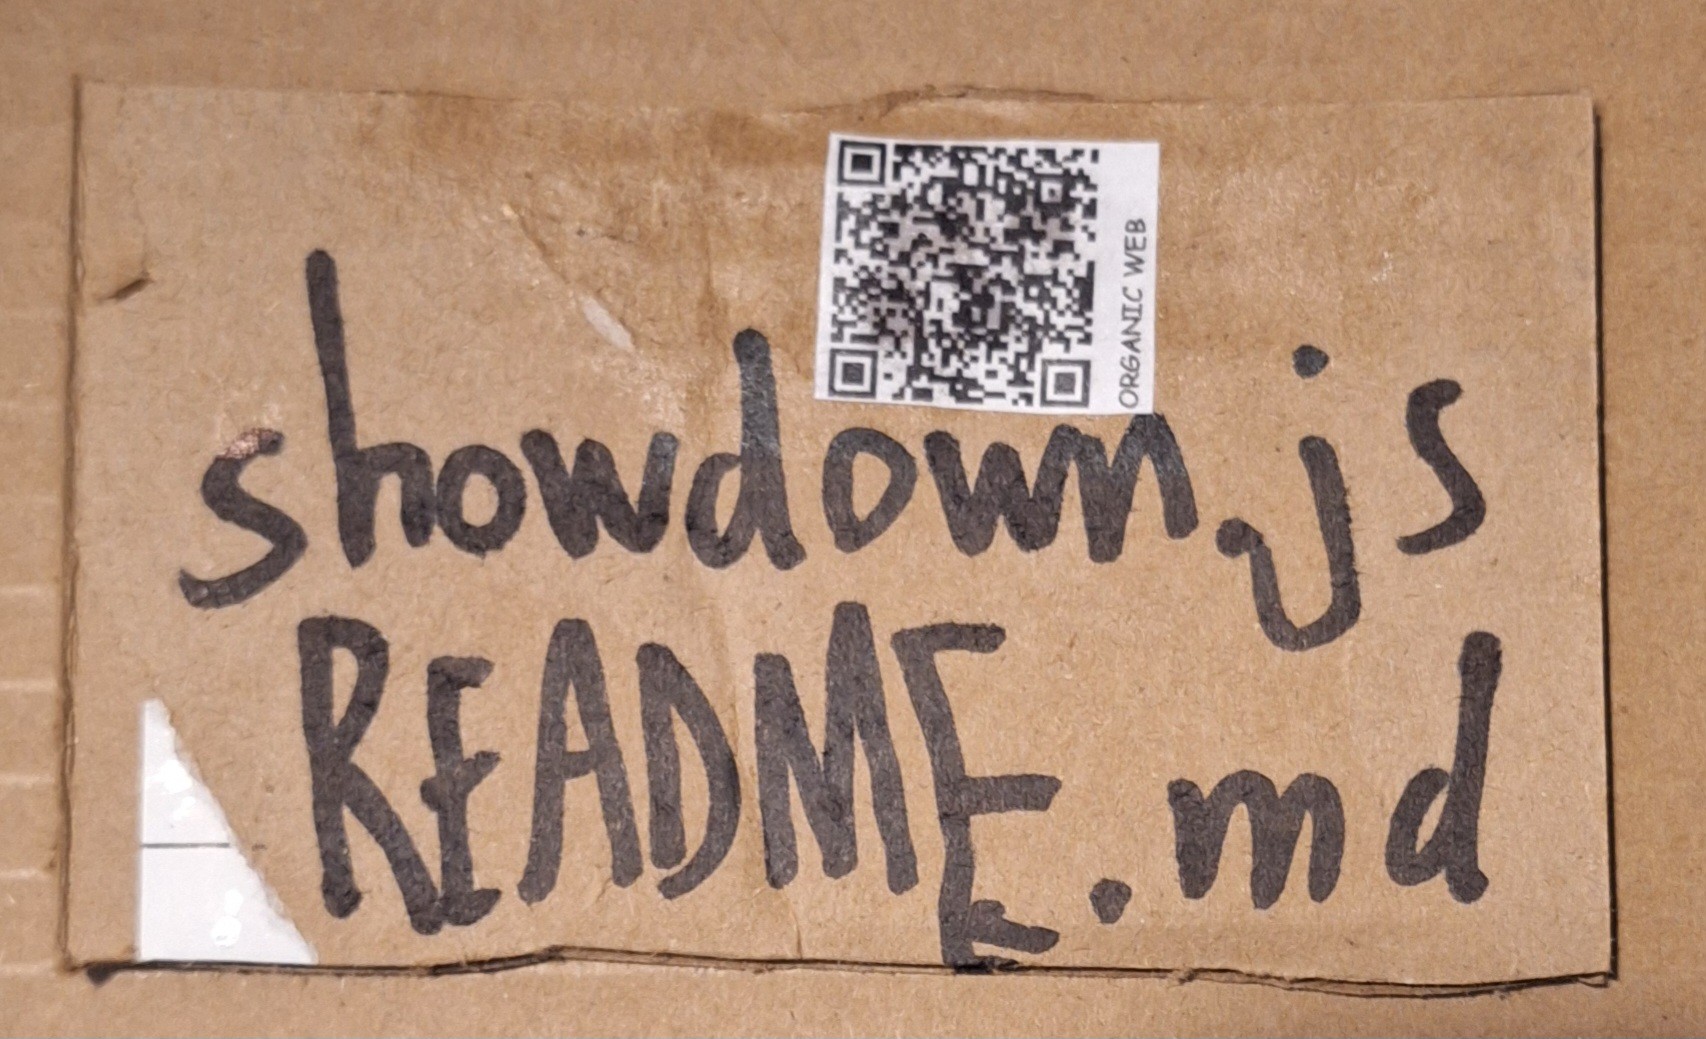 ORGANIC WEB
showdown.js
README.md